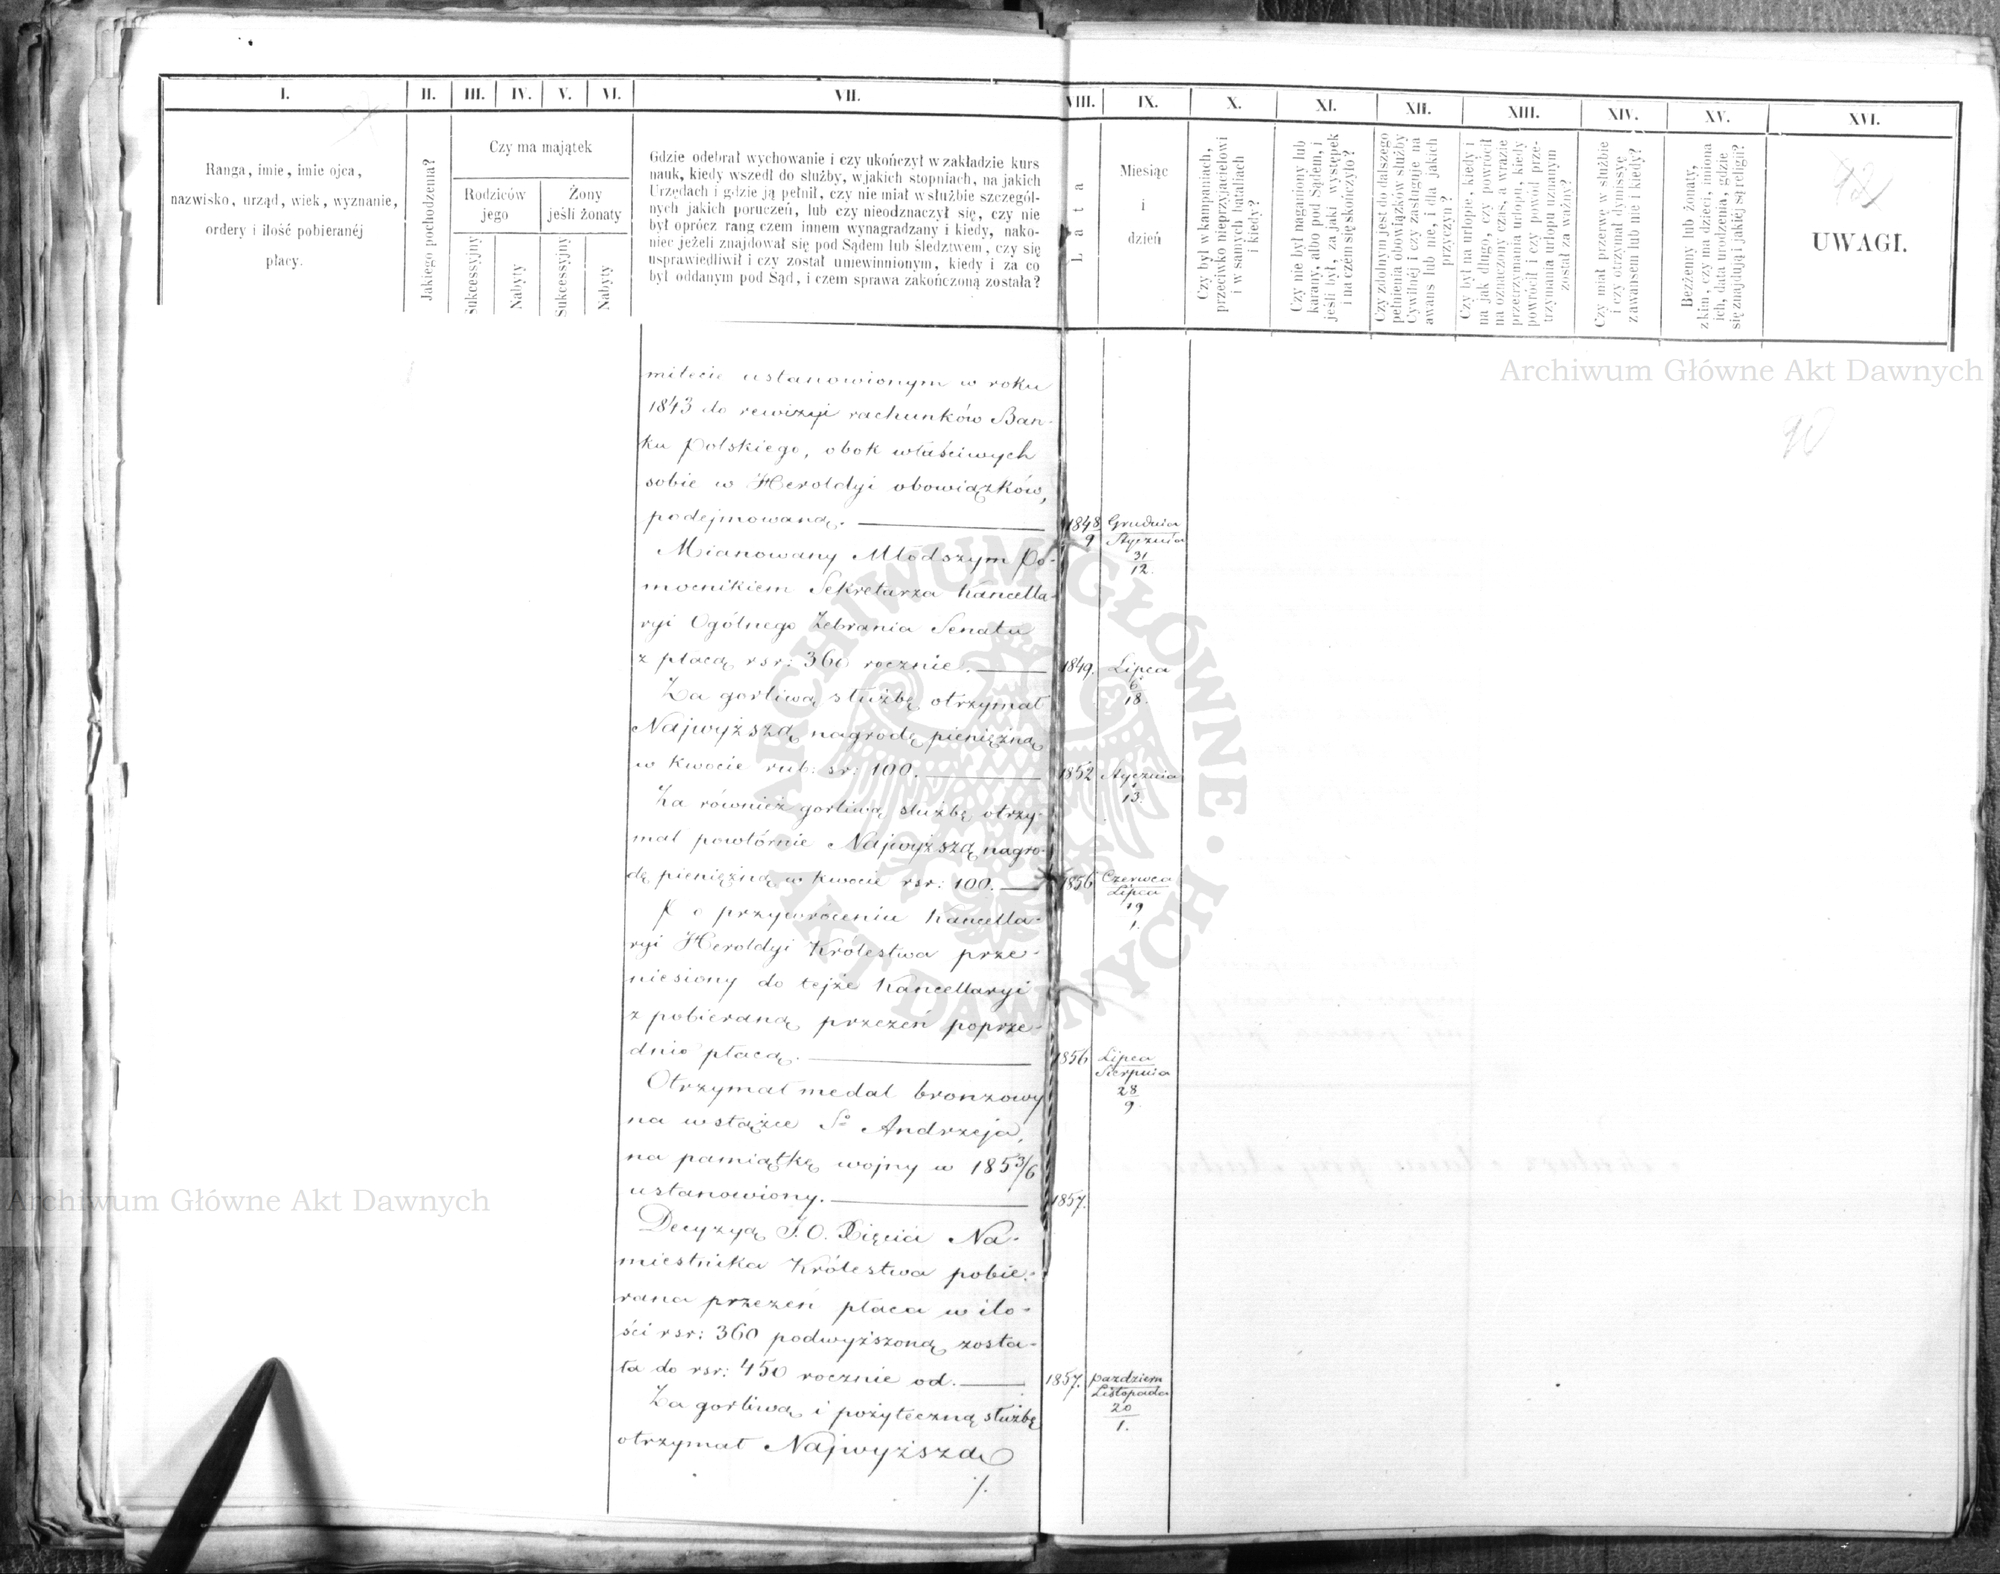 I. II. III. IV. V. VI. VII. VIII. IX. X. XI. XII. XIII. XIV. XV. XVI.
Ranga, imie, imie ojca,
nazwisko, urząd, wiek, wyznanie,
ordery i ilość pobieranéj
płacy.
Jakiego pochodzenia?
Czy ma majątek
Rodziców
jego
Żony
jeśli żonaty
Sukcessyjny
Nabyty
Sukcessyjny
Nabyty
Gdzie odebrał wychowanie i czy ukończył w zakładzie kurs
nauk, kiedy wszedł do służby, w jakich stopniach, na jakich
Urzędach i gdzie ją pełnił, czy nie miał w służbie szczegól-
nych jakich poruczeń, lub czy nieodznaczył się, czy nie
był oprócz rang czem innem wynagradzany i kiedy, nako-
niec jeżeli znajdował się pod Sądem lub śledztwem, czy się
usprawiedliwił i czy został uniewinnionym, kiedy i za co
był oddanym pod Sąd, i czem sprawa zakończoną została?
Lata
Miesiąc
i
dzień
Czy był w kampaniach,
przeciwko nieprzyjacielowi
i w samych bataliach
i kiedy?
Czy nie był naganiony lub
karany, albo pod Sądem, i
jeśli był, za jaki występek
i na czem się skończyło?
Czy zdolnym jest do dalszego
pełnienia obowiązków służby
Cywilnéj i czy zasługuje na
awans lub nie, i dla jakich
przyczyn?
Czy był na urlopie, kiedy i
na jak długo, czy powrócił
na oznaczony czas, a w razie
przetrzymania urlopu, kiedy
powrócił i czy powód prze-
trzymania urlopu uznanym
został za ważny?
Czy miał przerwę w służbie
i czy otrzymał dymissyę
z awansem lub nie i kiedy?
Bezżenny lub żonaty,
z kim, czy ma dzieci, imiona
ich, data urodzenia, gdzie
się znajdują i jakiéj są religii?
UWAGI.
42
90
Archiwum Główne Akt Dawnych
mitecie ustanowionym w roku
1843 do rewizyi rachunków Ban-
ku Polskiego, obok właściwych
sobie w Heroldyi obowiązków,
podejmowaną. 1848/9 Grudnia/Stycznia 31/12.
Mianowany Młodszym Po-
mocnikiem Sekretarza Kancella-
ryi Ogólnego Zebrania Senatu
z płacą rsr: 360 rocznie. 1849. Lipca 6/18.
Za gorliwą służbę otrzymał
Najwyższą nagrodę pieniężną
w kwocie rub: sr: 100. 1852 Stycznia 1/13.
Za również gorliwą służbę otrzy-
mał powtórnie Najwyższą nagro-
dę pieniężną w kwocie rsr: 100. 1856 Czerwca/Lipca 19/1.
Po przywróceniu Kancella-
ryi Heroldyi Królestwa prze-
niesiony do tejże Kancellaryi
z pobieraną przezeń poprze-
dnio płacą. 1856 Lipca/Sierpnia 28/9.
Otrzymał medal bronzowy
na wstążce So Andrzeja,
na pamiątkę wojny w 1853/6
ustanowiony. 1857.
Decyzyą J.O. Xięcia Na-
miestnika Królestwa pobie-
rana przezeń płaca w ilo-
ści rsr: 360 podwyższoną zosta-
ła do rsr: 450 rocznie od. 1857. Pazdziern/Listopada 20/1.
Za gorliwą i pożyteczną służbę
otrzymał Najwyższą
./.
Archiwum Główne Akt Dawnych
ARCHIWUM GŁÓWNE AKT DAWNYCH